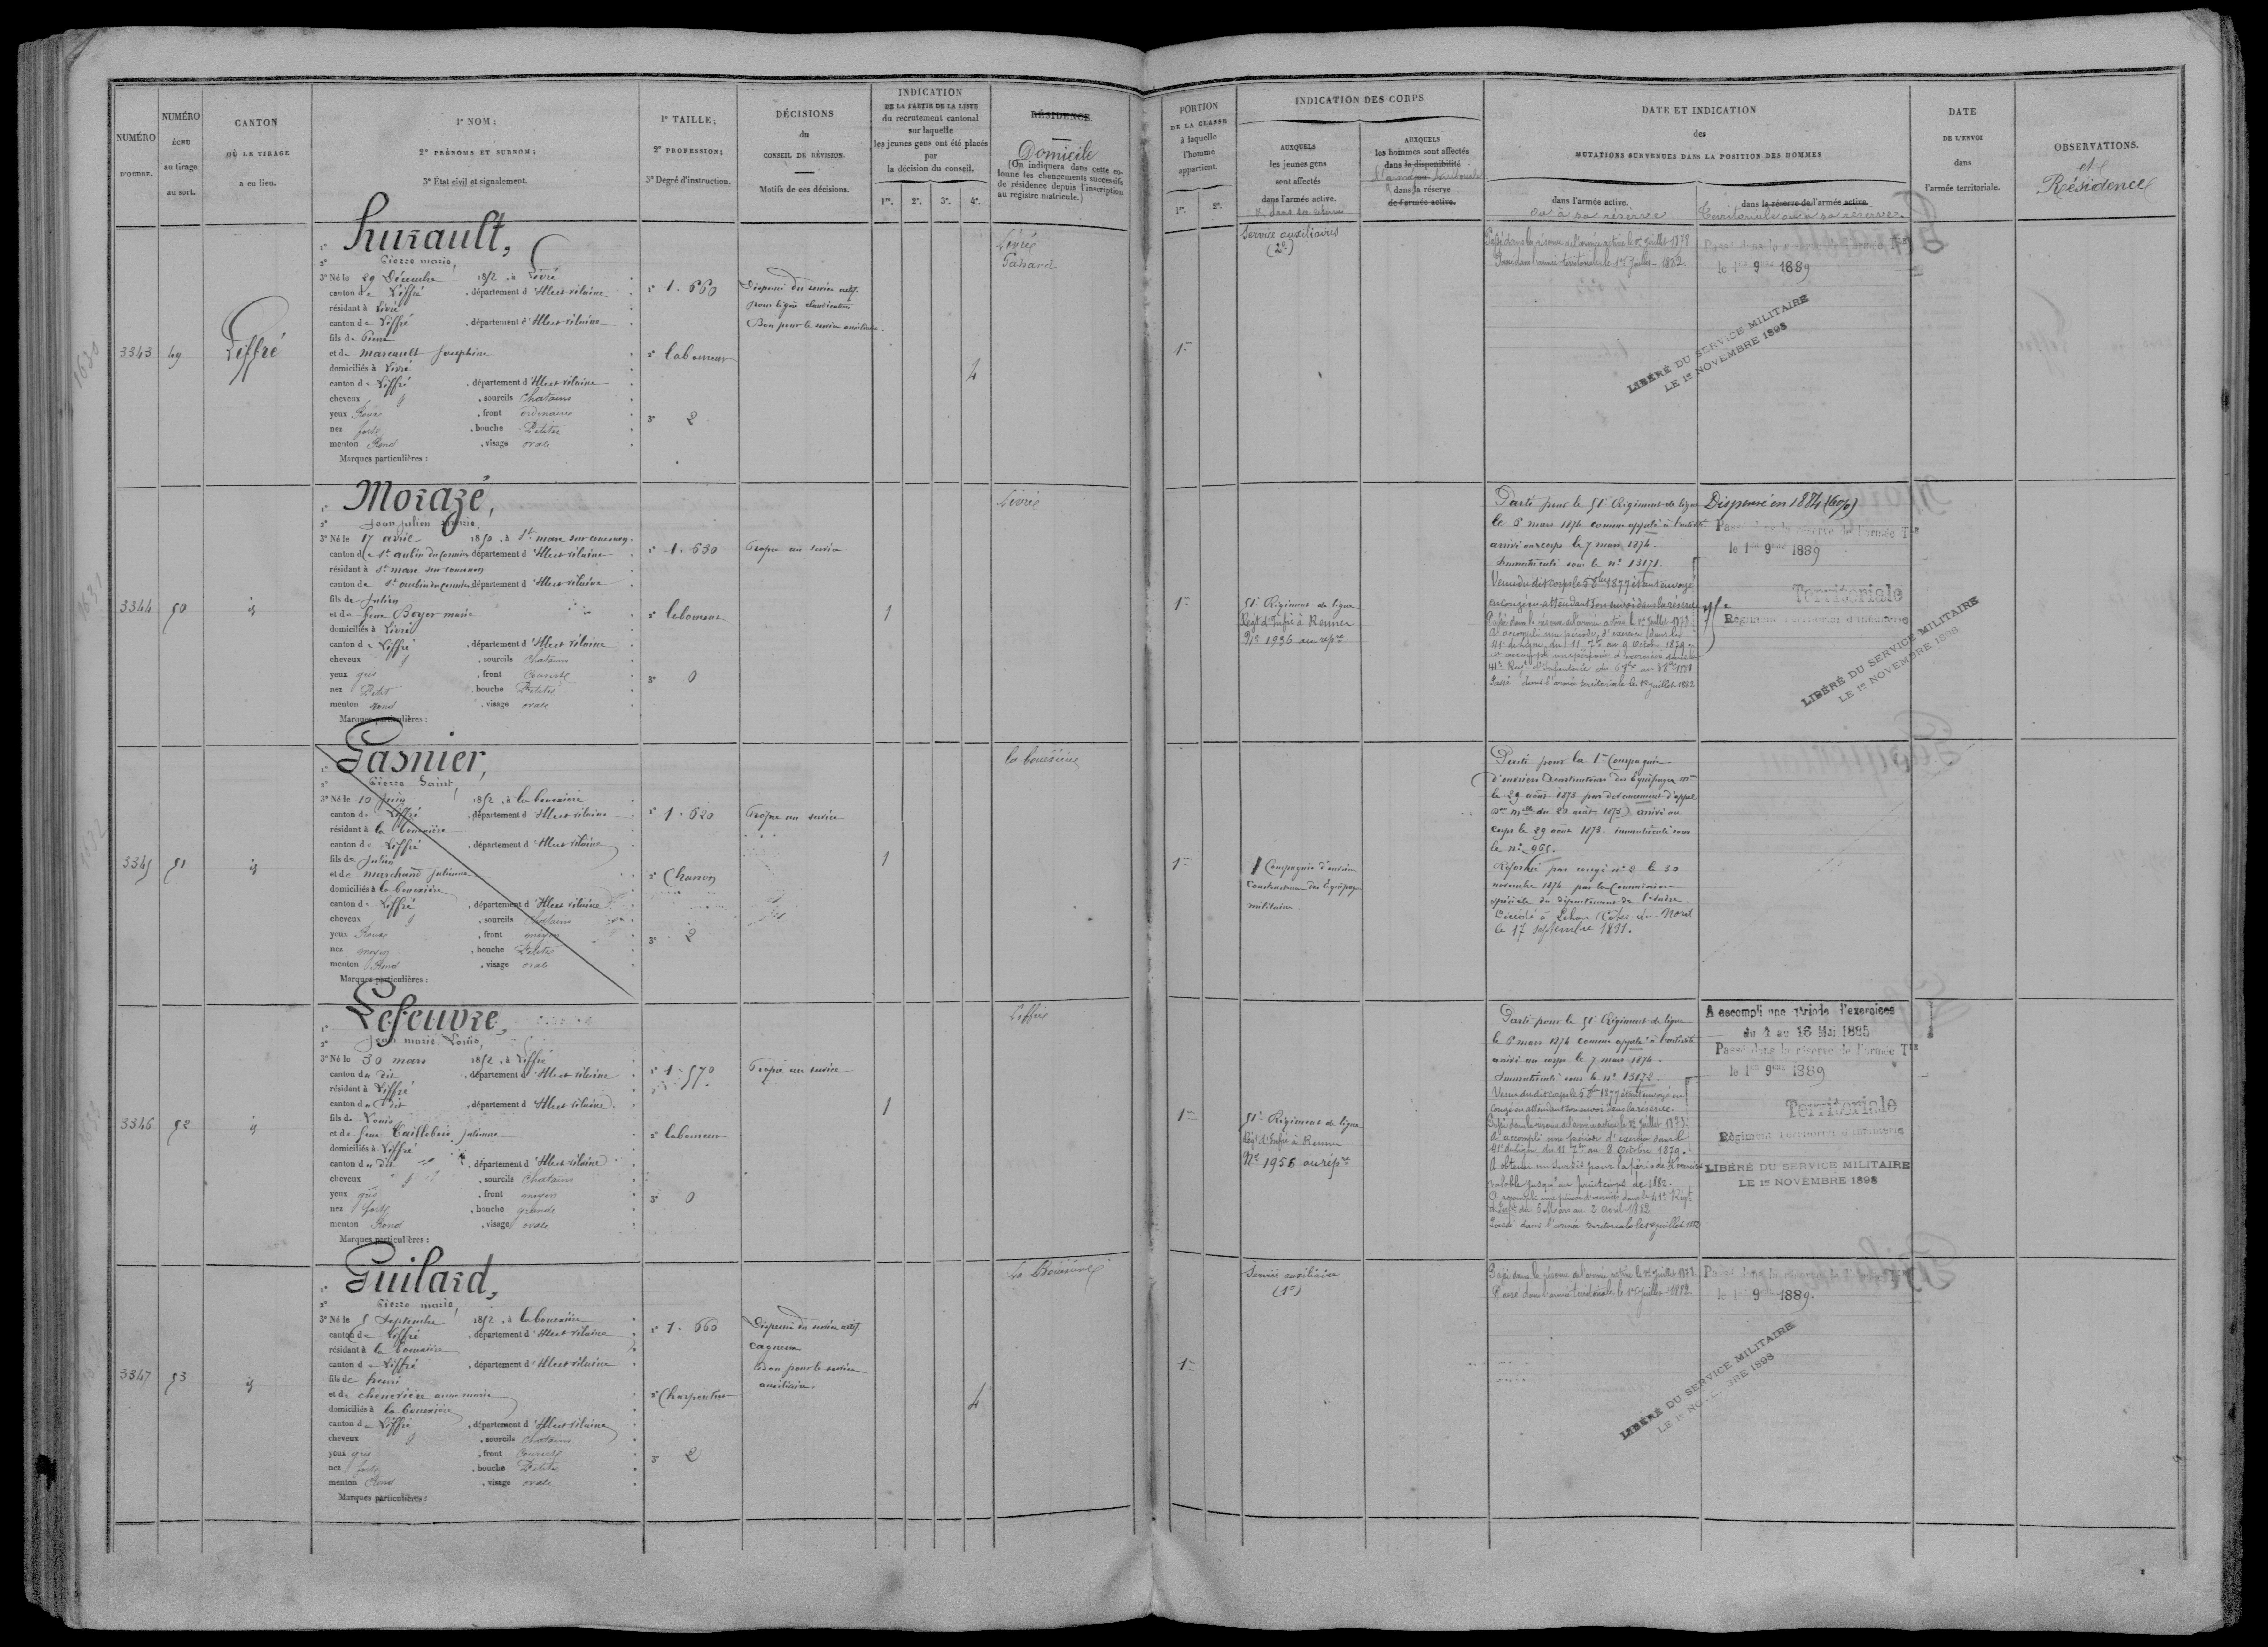 NUMÉRO
D'ORDRE.
NUMÉRO
ÉCHU
au tirage
au sort.
CANTON
OÙ LE TIRAGE
a eu lieu.
1º NOM;
2º PRÉNOMS ET SURNOM;
3º État civil et signalement.
1º TAILLE;
2º PROFESSION;
3º Degré d'instruction.
DÉCISIONS
du
CONSEIL DE RÉVISION.
Motifs de ces décisions.
INDICATION
DE LA PARTIE DE LA LISTE
du recrutement cantonal
sur laquelle
les jeunes gens ont été placés
par
la décision du conseil.
1re. 2e. 3e. 4e.
RÉSIDENCE.
Domicile
(On indiquera dans cette co-
lonne les changements successifs
de résidence depuis l'inscription
au registre matricule.)
PORTION
DE LA CLASSE
à laquelle
l'homme
appartient.
1re. 2e.
INDICATION DES CORPS
AUXQUELS
les jeunes gens
sont affectés
dans l'armée active.
AUXQUELS
les hommes sont affectés
dans la disponibilité
dans la réserve
de l'armée active.
DATE ET INDICATION
des
MUTATIONS SURVENUES DANS LA POSITION DES HOMMES
dans l'armée active.
ou à sa réserve
dans la réserve de l'armée active.
Territoriale ou à sa réserve.
DATE
DE L'ENVOI
dans
l'armée territoriale.
OBSERVATIONS.
et
Résidence
3343
49
Liffré
1º Hurault,
2º Pierre marie,
3º Né le 29 Décembre 1852, à Livré
canton de Liffré, département d'Ille et vilaine
résidant à Livré
canton de Liffré, département d'Ille et vilaine
fils de Pierre
et de Marcault Joséphine
domiciliés à Livré
canton de Liffré, département d'Ille et vilaine
cheveux, sourcils Chatains
yeux Roux, front ordinaire
nez fort, bouche Petite
menton Rond, visage ovale
Marques particulières :
1º 1.660
2º laboureur
3º 2
Dispensé du service actif
Bon pour le service auxiliaire.
4
Livré
Gahard
1re
Service auxiliaires
(2e)
Passé dans la réserve de l'armée active le 1er Juillet 1878
Passé dans l'armée territoriale le 1er Juillet 1882
Passé dans la réserve de l'armée Tle
le 1er 9bre 1889
LIBÉRÉ DU SERVICE MILITAIRE
LE 1er NOVEMBRE 1898
3344
50
id
1º Morazé,
2º Jean julien marie,
3º Né le 17 avril 1852, à St marc sur couesnon.
canton de St aubin du Cormier département d'Ille et vilaine
résidant à St marc sur couesnon
canton de St aubin du Cormier département d'Ille et vilaine
fils de Julien
et de feue Boyer marie
domiciliés à Livré
canton de Liffré, département d'Ille et vilaine
cheveux, sourcils Chatains
yeux gris, front Couvert
nez Petit, bouche Petite
menton rond, visage ovale
Marques particulières :
1º 1.630
2º laboureur
3º 0
Propre au service
1
Livré
1re
51e Régiment de ligne
Régt d'Infie à Rennes
Nº 1936 au répre
Parti pour le 51e Régiment de ligne
le 6 mars 1874 comme appelé à l'activité
arrivé au corps le 7 mars 1874.
Immatriculé sous le nº 13171.
Venu du dit corps le 5 8bre 1877 étant envoyé
en congé en attendant son envoi dans la réserve
Passé dans la réserve de l'armée active le 1er Juillet 1878
A accompli une période d'exercice dans le
41e de Ligne du 11 7bre au 9 Octobre 1879
Passé dans l'armée territoriale le 1er Juillet 1882
Dispensé en 1884 (6%)
Passé dans la réserve de l'armée Tle
le 1er 9bre 1889
Territoriale
Régiment Territorial d'Infanterie
LIBÉRÉ DU SERVICE MILITAIRE
LE 1er NOVEMBRE 1898
3345
51
id
1º Gasnier,
2º Pierre Saint,
3º Né le 10 juin 1852, à la bouexière
canton de Liffré, département d'Ille et vilaine
résidant à la bouexière
canton de Liffré, département d'Ille et vilaine
fils de Julien
et de marchand julienne
domiciliés à la bouexière
canton de Liffré, département d'Ille et vilaine
cheveux, sourcils Chatains
yeux Roux, front moyen
nez moyen, bouche Petite
menton Rond, visage ovale
Marques particulières :
1º 1.620
2º Charron
3º 2
Propre au service
1
la bouëxière
1re
1 Compagnie d'ouvriers
Constructeurs des Equipages
militaires.
Parti pour la 1re Compagnie
d'ouvriers Constructeurs des Equipages mres
le 29 août 1873 par devancement d'appel
arrivé au
corps le 29 août 1873. immatriculé sous
le nº 965.
Réformé par congé nº 2 le 30
novembre 1874 par la Commission
spéciale du département de l'Indre.
Décédé à Lehon (Côtes-du-Nord
le 17 septembre 1891.
3346
52
id
1º Lefeuvre,
2º Jean marie Louis,
3º Né le 30 mars 1852, à Liffré
canton du dit, département d'Ille et vilaine
résidant à Liffré
canton du dit, département d'Ille et vilaine
fils de Louis
et de feue Taillebois julienne
domiciliés à Liffré
canton du dit, département d'Ille et vilaine
cheveux, sourcils Chatains
yeux gris, front moyen
nez fort, bouche grande
menton Rond, visage ovale
Marques particulières :
1º 1.570
2º laboureur
3º 0
Propre au service
1
Liffré
1re
51e Régiment de ligne
Régt d'Infie à Rennes
Nº 1956 au répre
Parti pour le 51e Régiment de ligne
le 6 mars 1874 comme appelé à l'activité
arrivé au corps le 7 mars 1874.
Immatriculé sous le nº 13172.
Venu du dit corps le 5 8bre 1877 étant envoyé en
congé en attendant son envoi dans la réserve.
Passé dans la réserve de l'armée active le 1er Juillet 1878
A accompli une période d'exercice dans le
41e de Ligne du 11 7bre au 8 Octobre 1879.
A obtenu un sursis pour la période d'exercices
valable jusqu'au printemps de 1882.
A accompli une période d'exercices dans le 41e Régt
d'Inft du 6 Mars au 2 Avril 1882
Passé dans l'armée territoriale le 1er Juillet 1882
A accompli une période d'exercices
du 4 au 16 Mai 1885
Passé dans la réserve de l'armée Tle
le 1er 9bre 1889
Territoriale
Régiment Territorial d'Infanterie
LIBÉRÉ DU SERVICE MILITAIRE
LE 1er NOVEMBRE 1898
3347
53
id
1º Guilard,
2º Pierre marie,
3º Né le 5 Septembre 1852, à la bouexière
canton de Liffré, département d'Ille et vilaine
résidant à la bouexière
canton de Liffré, département d'Ille et vilaine
fils de henri
et de chenevière anne marie
domiciliés à la bouexière
canton de Liffré, département d'Ille et vilaine
cheveux, sourcils Chatains
yeux gris, front Couvert
nez fort, bouche Petite
menton Rond, visage ovale
Marques particulières :
1º 1.660
2º Charpentier
3º 2
Dispensé du service actif
cagneux
Bon pour le service
auxiliaire.
4
La Bouëxière
1re
Service auxiliaire
(1e)
Passé dans la réserve de l'armée active le 1er Juillet 1878
Passé dans l'armée territoriale le 1er Juillet 1882
Passé dans la réserve de l'armée Tle
le 1er 9bre 1889.
LIBÉRÉ DU SERVICE MILITAIRE
LE 1er NOVEMBRE 1898